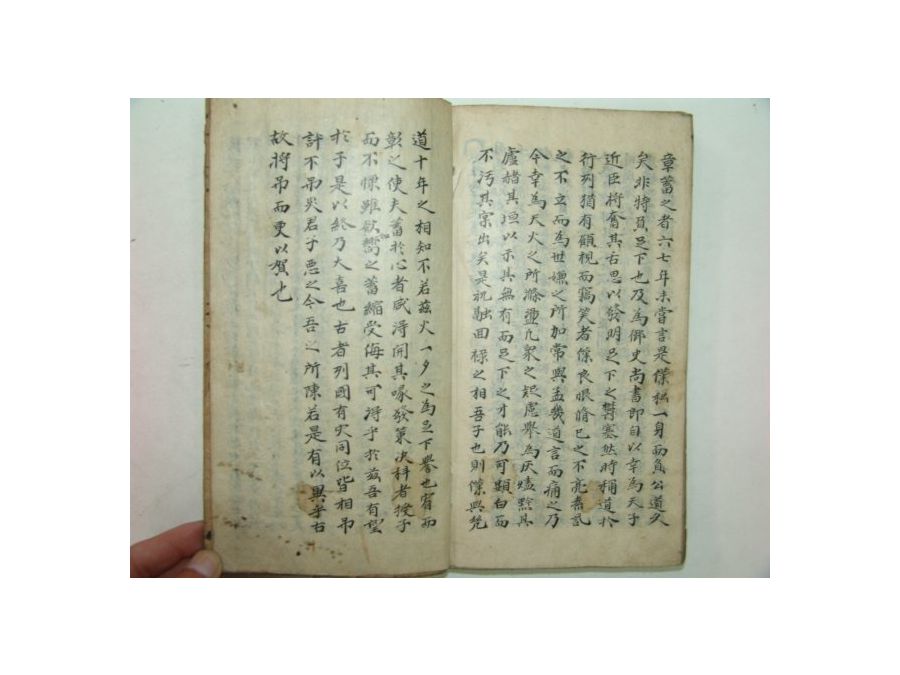 章蓄之者六七年未嘗言是僕私一身而負公道久
矣非特負足下也及為御史尚書郎自以幸為天子
近臣得奮其舌思以發明足下之鬱塞然時稱道於
行列猶有顧視而竊笑者僕良恨脩己之不亮素譽
之不立而為世嫌之所加常與孟幾道言而痛之乃
今幸為天火之所滌盪凡衆之起慮舉為灰埃黔其
廬赭其垣以示其無有而足下之才能乃可顯白而
不汚其宲出矣是祝融回祿之相吾子也則僕與幾
道十年之相知不若茲火一夕之為足下譽也宥而
彰之使夫蓄於心者咸淂開其喙發策决科者授子
而不慄雖欲嚮之蓄縮受侮其可淂乎於茲吾有望
於子是以終乃大喜也古者列國有灾同位皆相吊
許不吊灾君子悪之今吾之所陳若是有以異乎古
故將吊而更以賀也